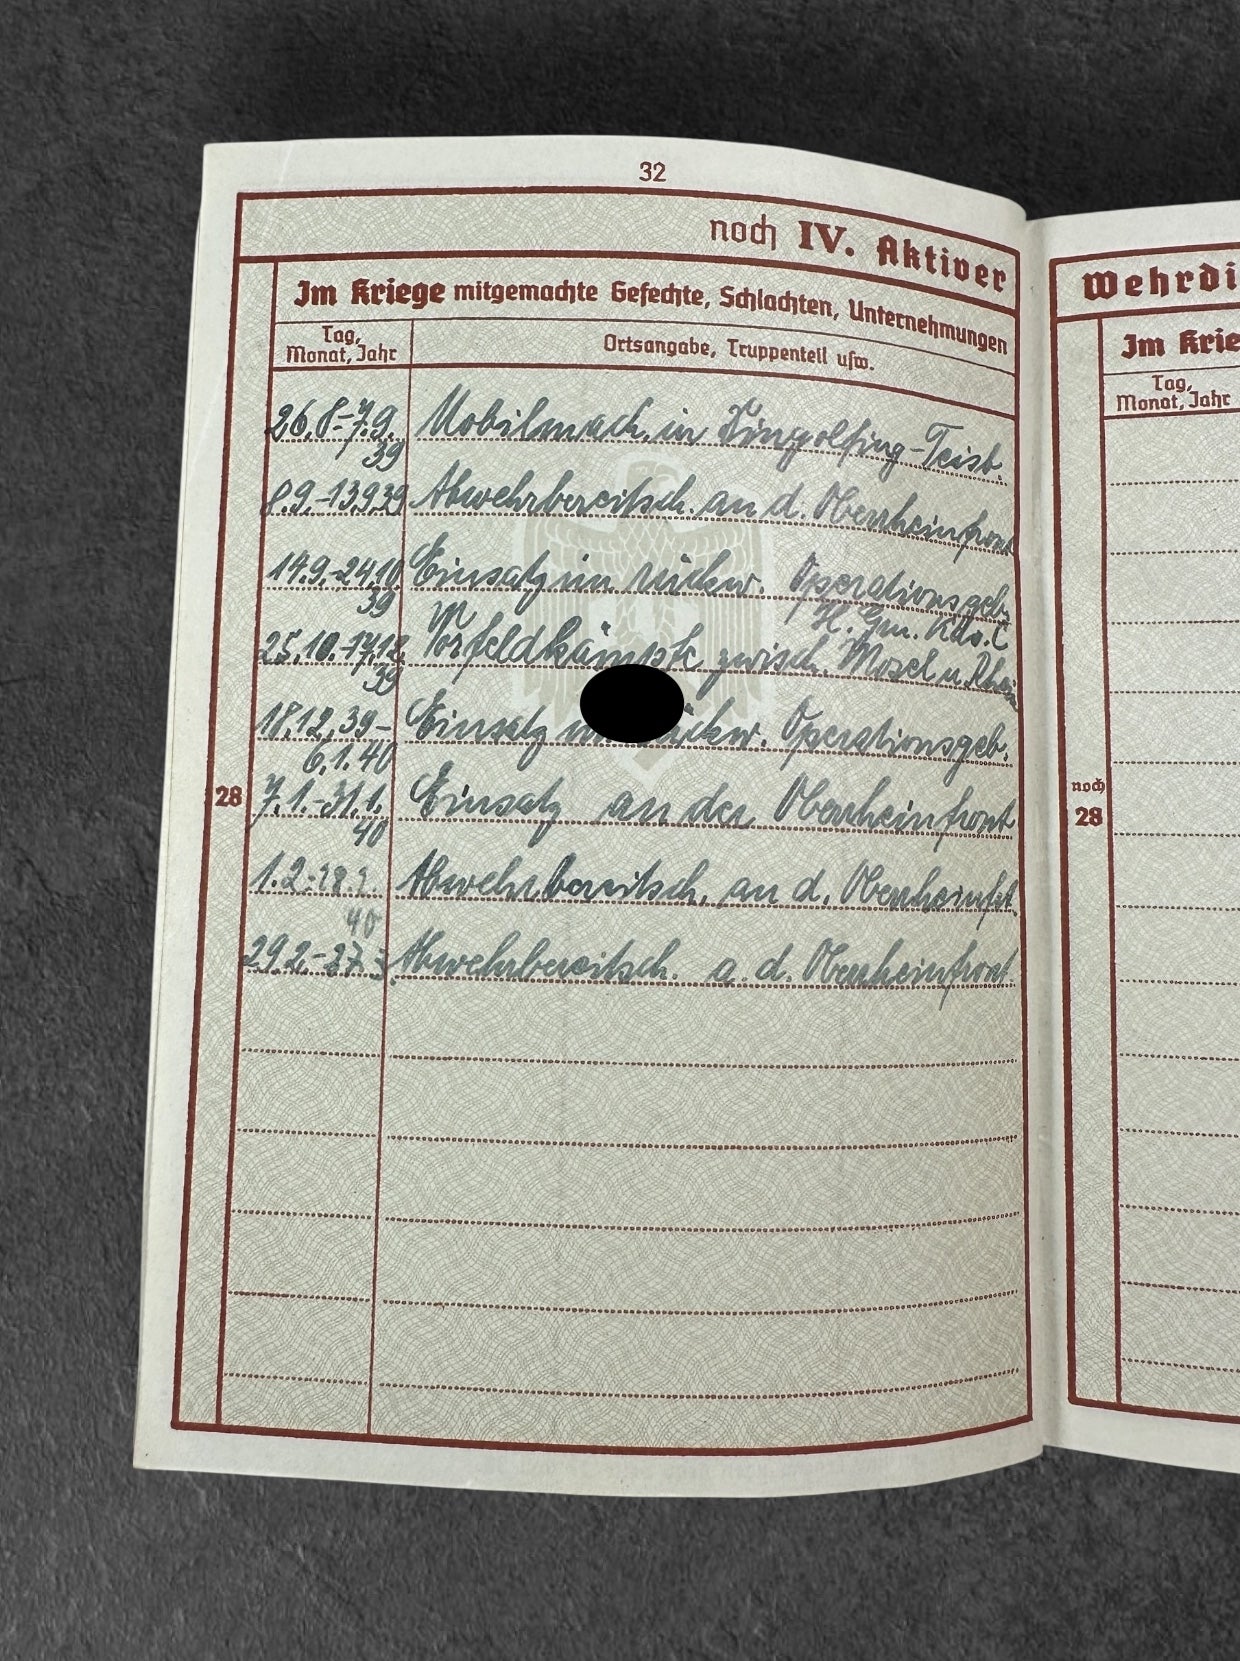 32
noch IV. Aktiver
Im Kriege mitgemachte Gefechte, Schlachten, Unternehmungen
Tag,
Monat, Jahr
Ortsangabe, Truppenteil usw.
26.8-7.9. Mobilmach. in Dingolfing-Teisb.
39
8.9.-13.9.39 Abwehrbereitsch. an d. Oberrheinfront
14.9.-24.10 Einsatz im rückw. Operationsgeb.
39 H. Gru. Kdo. C
25.10.-17.12. Vorfeldkämpfe zwisch. Mosel u. Rhein
39
18.12.39- Einsatz im rückw. Operationsgeb.
6.1.40
28
7.1.-31.1. Einsatz an der Oberrheinfront
40
1.2.-28.2. Abwehrbereitsch. an d. Oberrheinfrt.
40
29.2.-27.3. Abwehrbereitsch. a. d. Oberrheinfront.
Wehrdi
Im Krie
Tag,
Monat, Jahr
noch
28